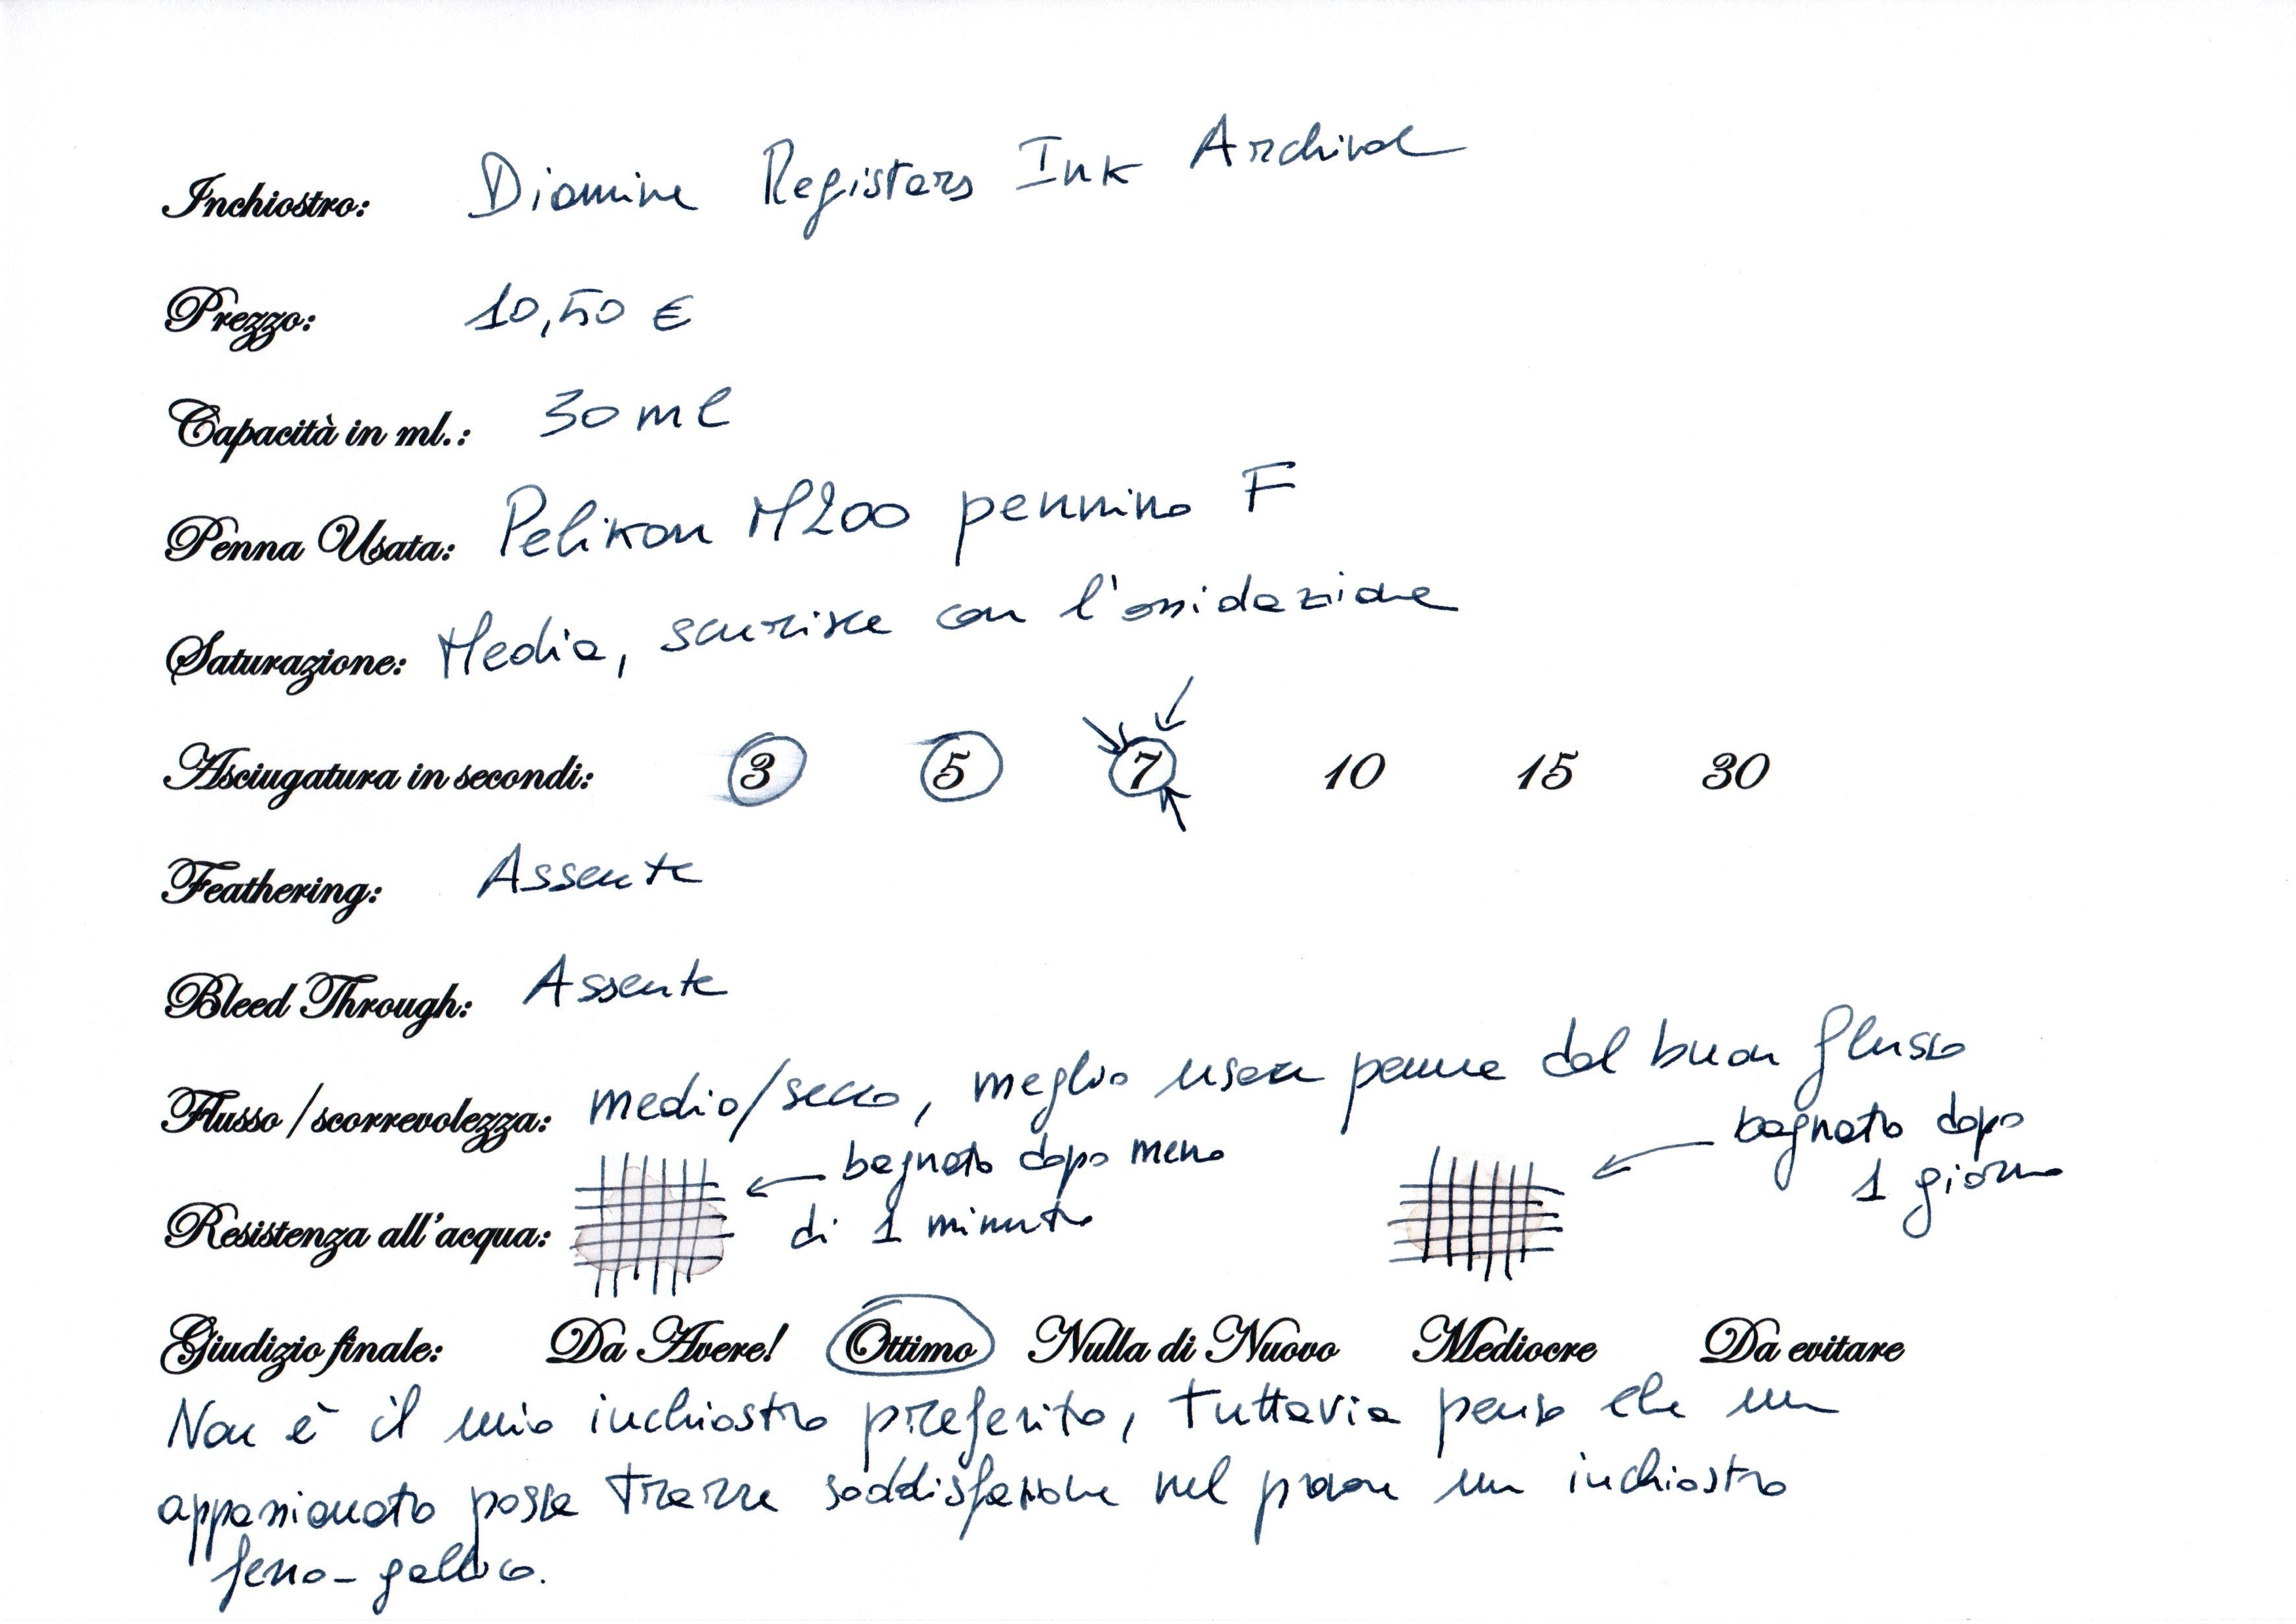 Inchiostro: Diamine Registars Ink Archival
Prezzo: 10,50 €
Capacità in ml.: 30 ml
Penna Usata: Pelikan M200 pennino F
Saturazione: Media, scurisce con l'ossidazione
Asciugatura in secondi: 3 5 7 10 15 30
Feathering: Assente
Bleed Through: Assente
Flusso / scorrevolezza: medio/secco, meglio usare penne dal buon flusso
Resistenza all'acqua: bagnato dopo meno
di 1 minuto
bagnato dopo
1 giorno
Giudizio finale: Da Avere! Ottimo Nulla di Nuovo Mediocre Da evitare
Non è il mio inchiostro preferito, tuttavia penso che un
appassionato possa trarre soddisfazione nel provare un inchiostro
ferro-gallico.